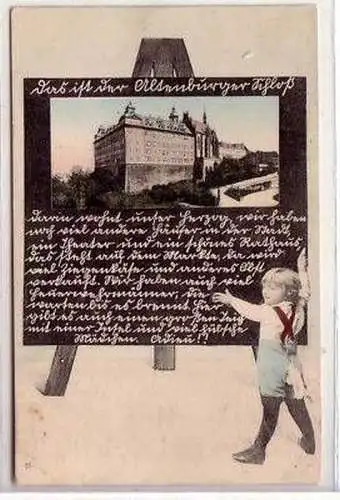 Das ist der Altenburger Schloß
Darin wohnt unser Herzog, wir haben
noch viel andere Häuser in der Stadt,
ein Theater und ein schönes Rathaus,
das steht auf dem Markte, da wird
viel Ziegenkäse und anderes Obst
verkauft. Wir haben auch viel
Feuerwehrmänner, die
warten bis es brennt. Hier
gibt es auch einen großen Teig
mit einer Insel und viel hübsche
Mädchen. Adieu!!